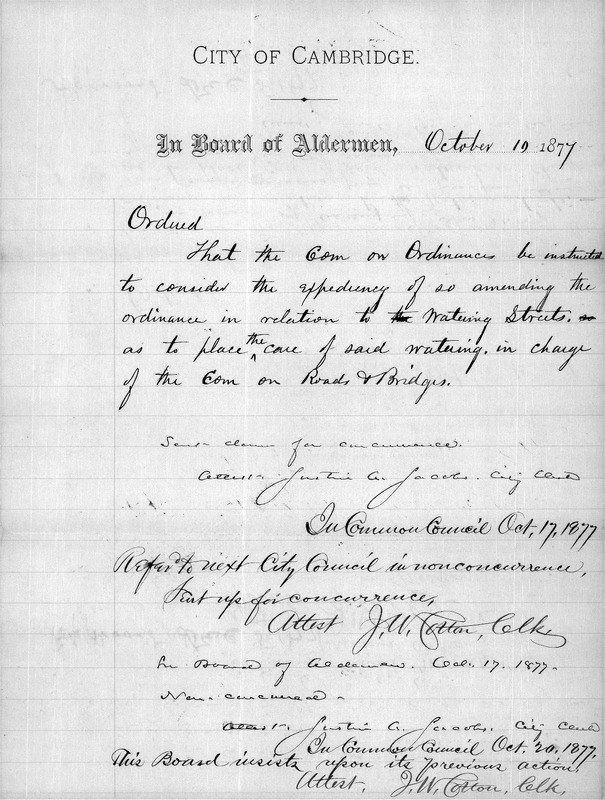 CITY OF CAMBRIDGE.
In Board of Aldermen, October 10 1877
Ordered
That the Com on Ordinances be instructed
to consider the expediency of so amending the
ordinance in relation to the Watering Streets. so
as to place the care of said watering. in charge
of the Com on Roads & Bridges.
Sent down for concurrence.
Attest. Justin A. Jacobs. City Clerk
In Common Council Oct, 17, 1877
Refer'd to next City Council in nonconcurrence,
Sent up for concurrence,
Attest J. W. Cotton, Clk.
In Board of Aldermen. Oct. 17. 1877.
Non-concurred.
Attest. Justin A. Jacobs. City Clerk
In Common Council Oct. 20, 1877,
This Board insists upon its previous action,
Attest. J. W. Cotton, Clk.